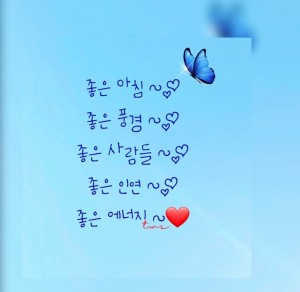 좋은 아침 ~💕
좋은 풍경 ~💕
좋은 사람들 ~💕
좋은 인연 ~💕
좋은 에너지 ~❤️